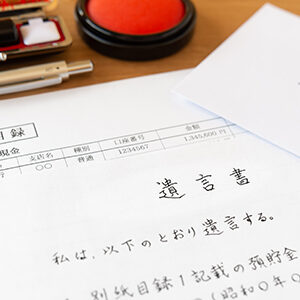 目録
現金 支店名 種別 口座番号 金額
〇〇 普通 1234567 1,345,600円
遺言書
私は、以下のとおり遺言する。
別紙目録1記載の預貯金
(昭和〇年〇